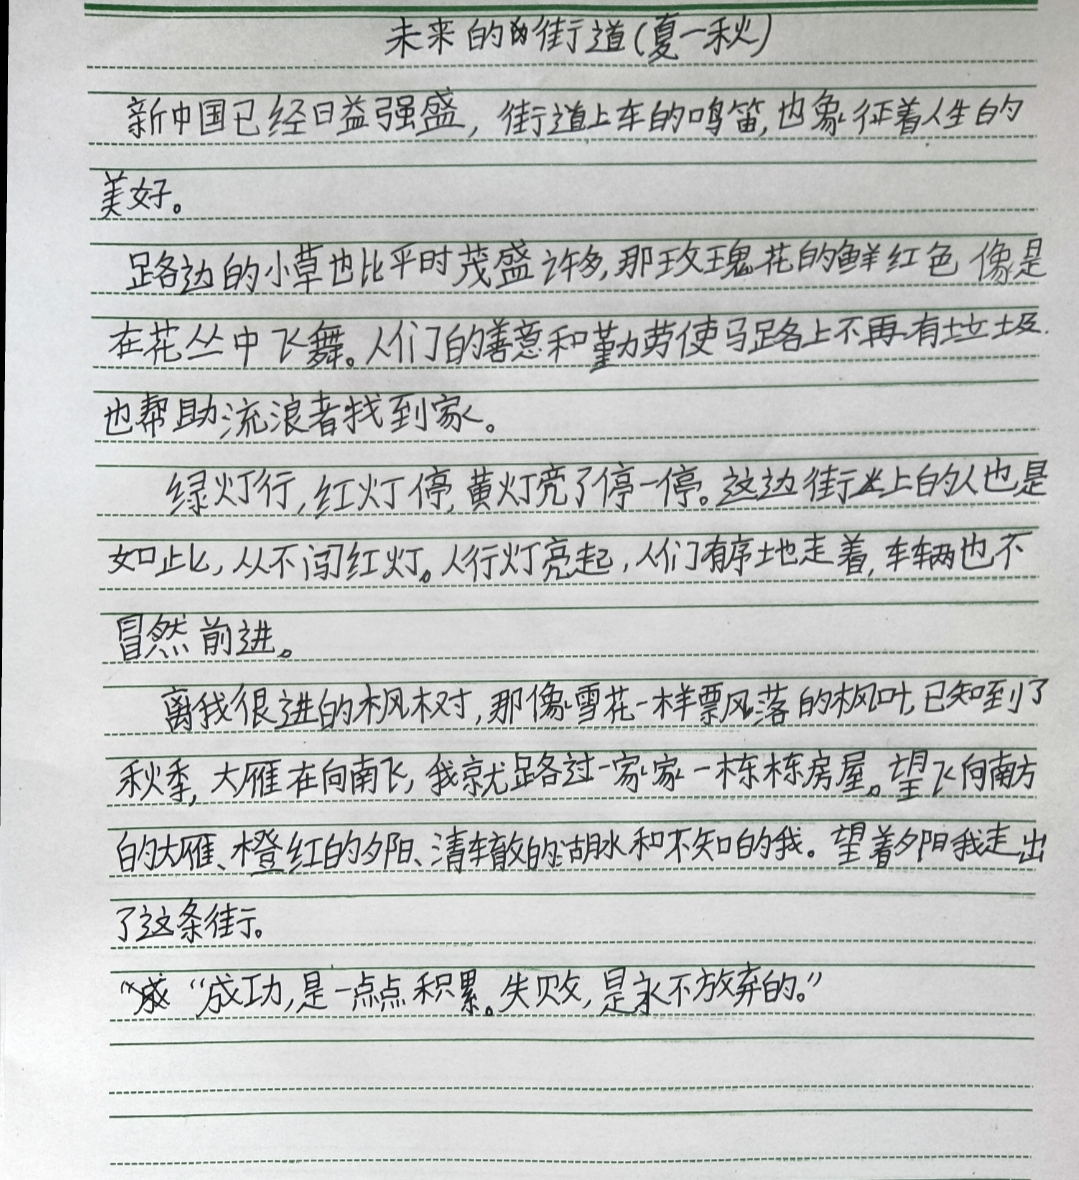 未来的街道(夏一秋)
新中国已经日益强盛，街道上车的鸣笛,也象征着人生的
美好。
路边的小草也比平时茂盛许多,那玫瑰花的鲜红色像是
在花丛中飞舞。人们的善意和勤劳使马路上不再有垃圾.
也帮助流浪者找到家。
绿灯行,红灯停,黄灯亮了停一停。这边街上的人也是
如此，从不闯红灯。人行灯亮起，人们有序地走着,车辆也不
冒然前进。
离我很进的枫树,那像雪花一样票风落的枫叶,已知到了
秋季,大雁在向南飞,我就路过一家家一栋栋房屋。望飞向南方
的大雁、橙红的夕阳、清辙的湖水和不知的我。望着夕阳我走出
了这条街。
“成功,是一点点积累。失败,是永不放弃的。”